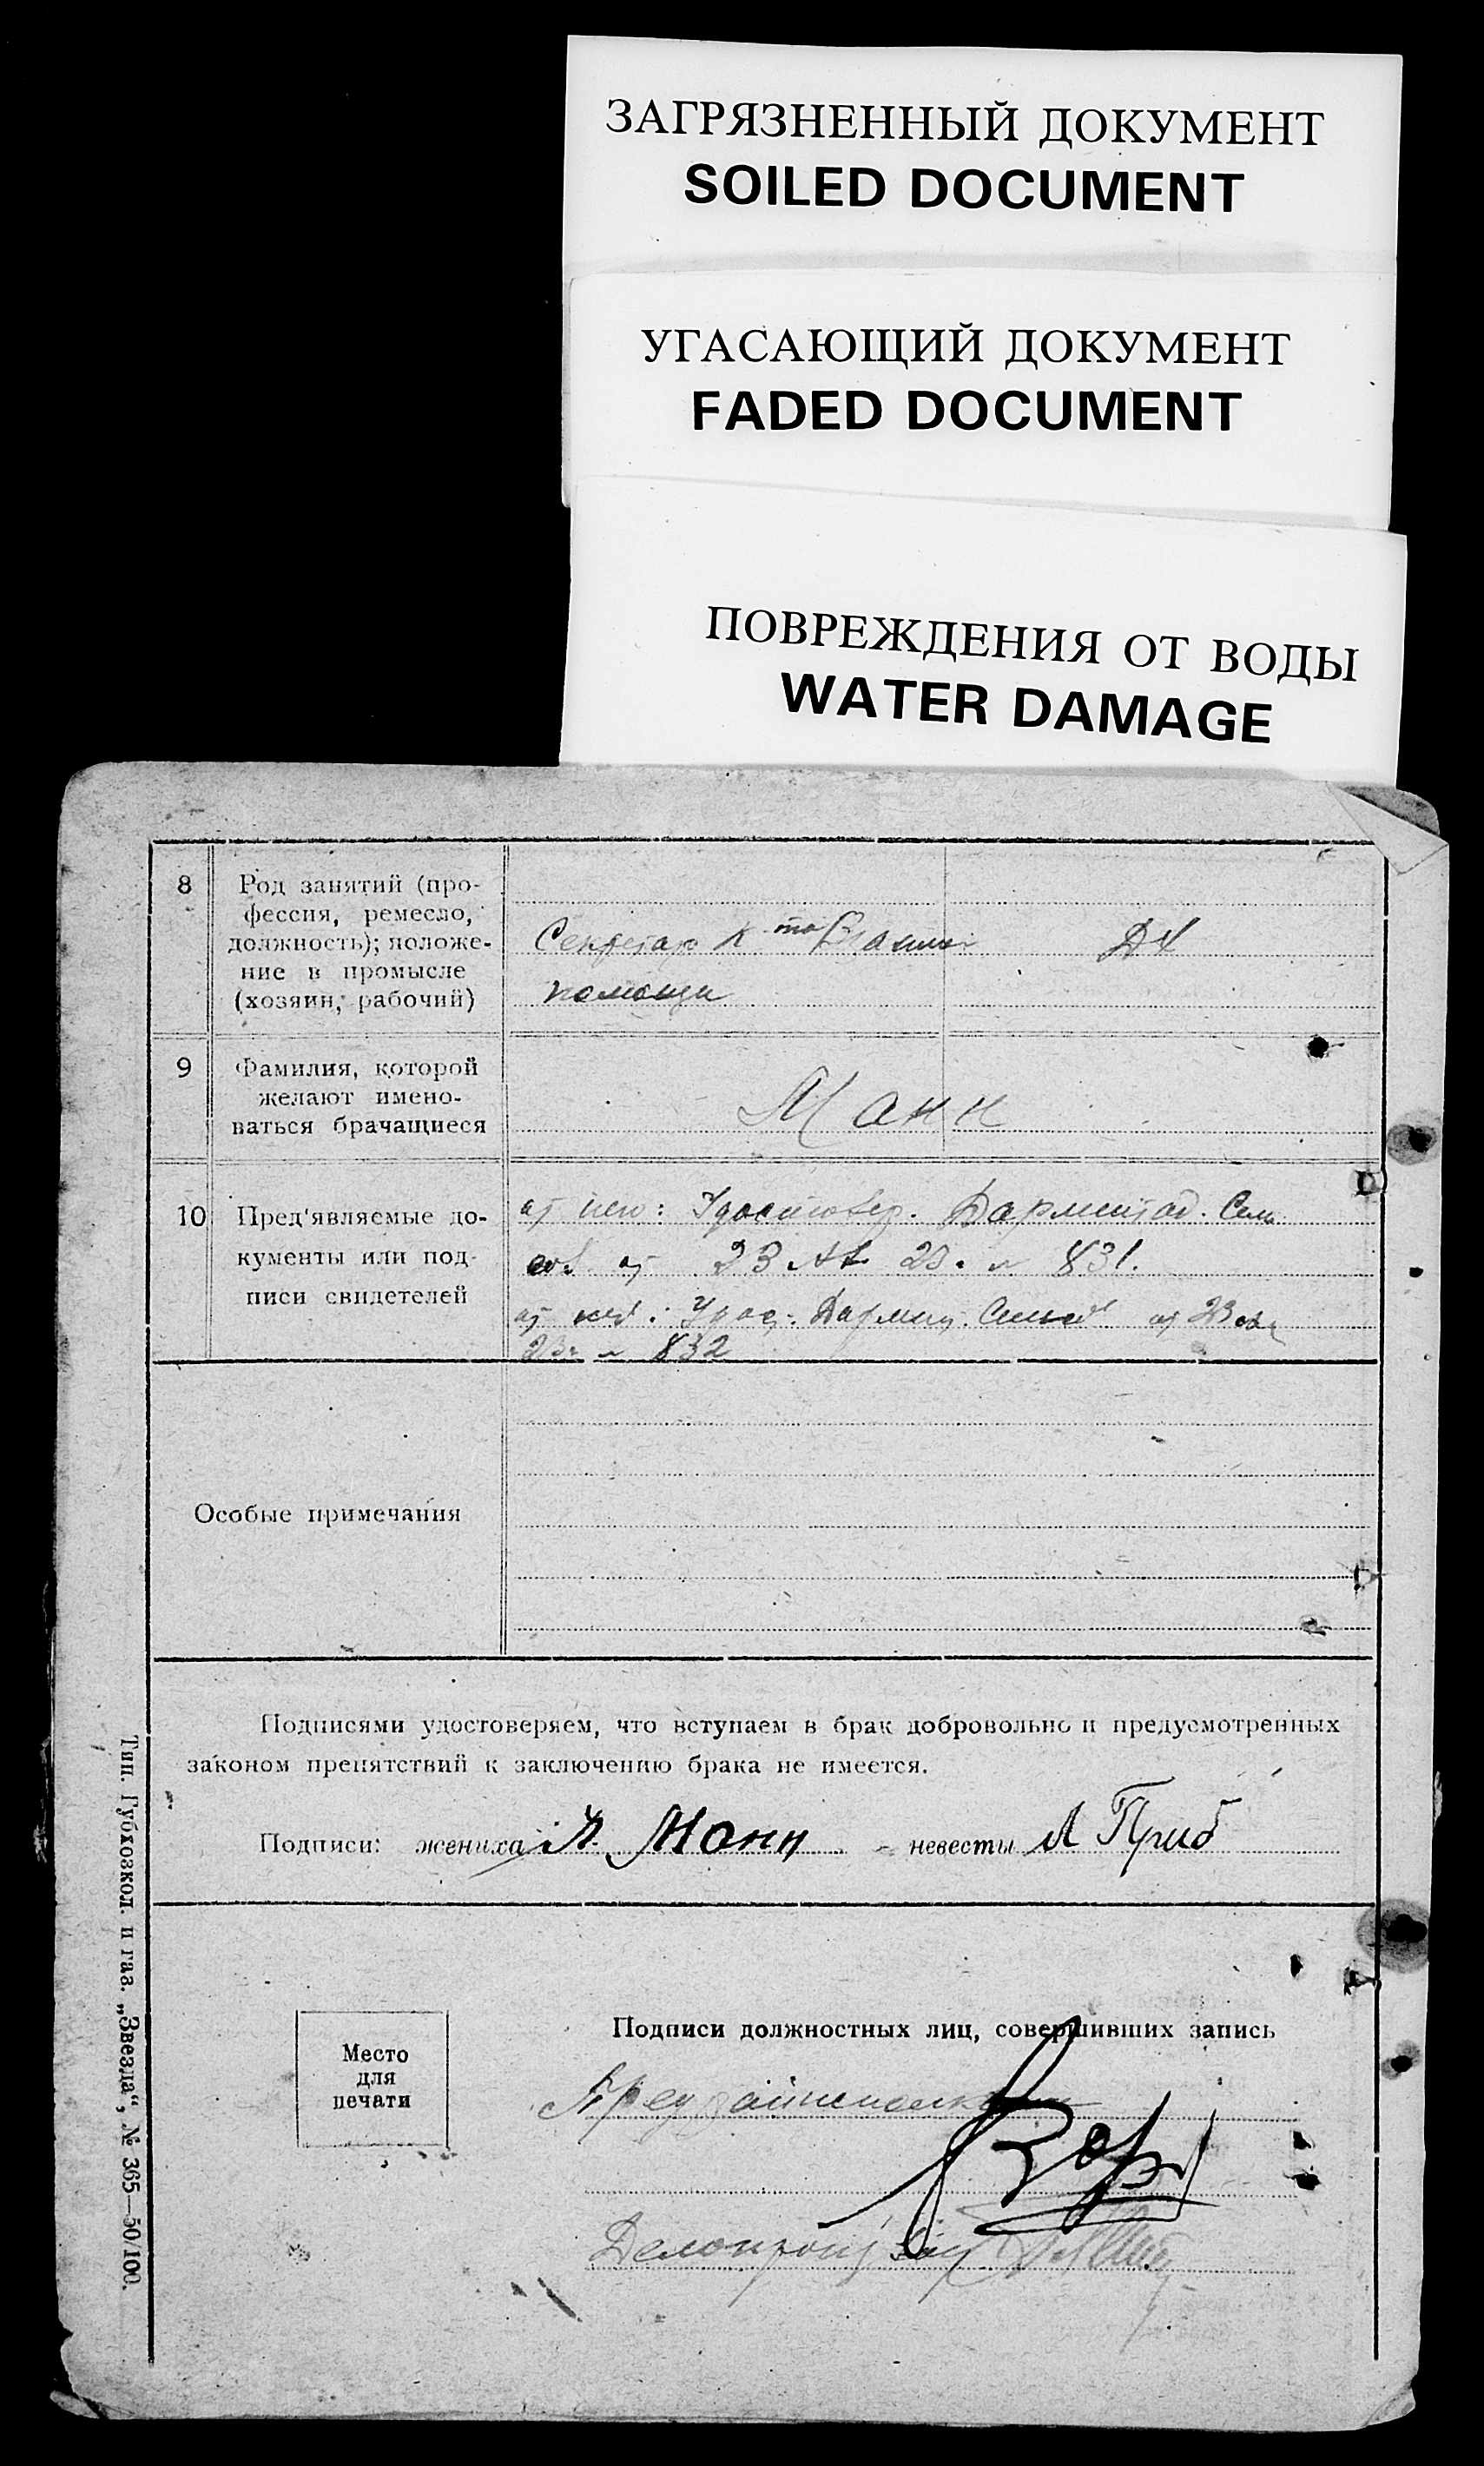 ЗАГРЯЗНЕННЫЙ ДОКУМЕНТ
SOILED DOCUMENT
УГАСАЮЩИЙ ДОКУМЕНТ
FADED DOCUMENT
ПОВРЕЖДЕНИЯ ОТ ВОДЫ
WATER DAMAGE
8
Род занятий (про-
фессия, ремесло,
должность); положе-
ние в промысле
(хозяин, рабочий)
Секретарь К-та Взаимн
помощи
ДХ
9
Фамилия, которой
желают имено-
ваться брачащиеся
Манн
10
Пред'являемые до-
кументы или под-
писи свидетелей
от жен: Удостовер. Дармштад. Сель
сов от 23 23. 831.
от нев: Удос. Дармш. от 23
23г 832
Особые примечания
Подписями удостоверяем, что вступаем в брак добровольно и предусмотренных
законом препятствий к заключению брака не имеется.
Подписи: жениха Я. Манн невесты Л Приб
Место
для
печати
Подписи должностных лиц, совершивших запись
Пред райисполкома
Делопроизвод
Тип. Губхозкол. и газ. „Звезда", № 365—50/100.